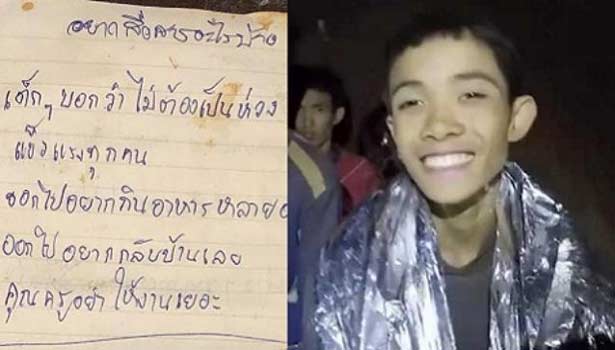 อยากสื่อสารอะไรบ้าง
เด็กๆ บอกว่า ไม่ต้องเป็นห่วง
แข็งแรงทุกคน
ออกไปอยากกินอาหารหลายอ
ออกไปอยากกลับบ้านเลย
คุณครูอย่าให้งานเยอะ